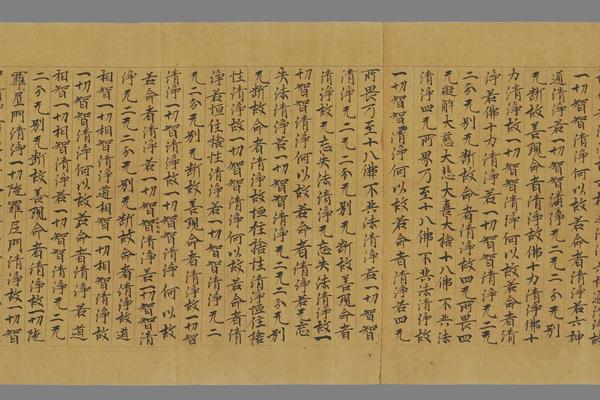 一切智智清淨何以故若命者清淨若六神
通清淨若一切智智清淨无二无二分无別
无斷故善現命者清淨故佛十力清淨佛十
力清淨故一切智智清淨何以故若命者清
淨若佛十力清淨若一切智智清淨无二无
二分无別无斷故命者清淨故四无所畏四
无礙解大慈大悲大喜大捨十八佛不共法
清淨四无所畏乃至十八佛不共法清淨故
一切智智清淨何以故若命者清淨若四无
所畏乃至十八佛不共法清淨若一切智智
清淨无二无二分无別无斷故善現命者
清淨故无忘失法清淨无忘失法清淨故一
切智智清淨何以故若命者清淨若无忘
失法清淨若一切智智清淨无二无二分无別
无斷故命者清淨故恒住捨性清淨恒住捨
性清淨故一切智智清淨何以故若命者清
淨若恒住捨性清淨若一切智智清淨无二
无二分无別无斷故善現命者清淨故一切智
清淨一切智清淨故一切智智清淨何以故
若命者清淨若一切智清淨若一切智智清
淨无二无二分无別无斷故命者清淨故道
相智一切相智清淨道相智一切相智清淨故
一切智智清淨何以故若命者清淨若道
相智一切相智清淨若一切智智清淨无二无
二分无別无斷故善現命者清淨故一切陀
羅尼門清淨一切陀羅尼門清淨故一切智智